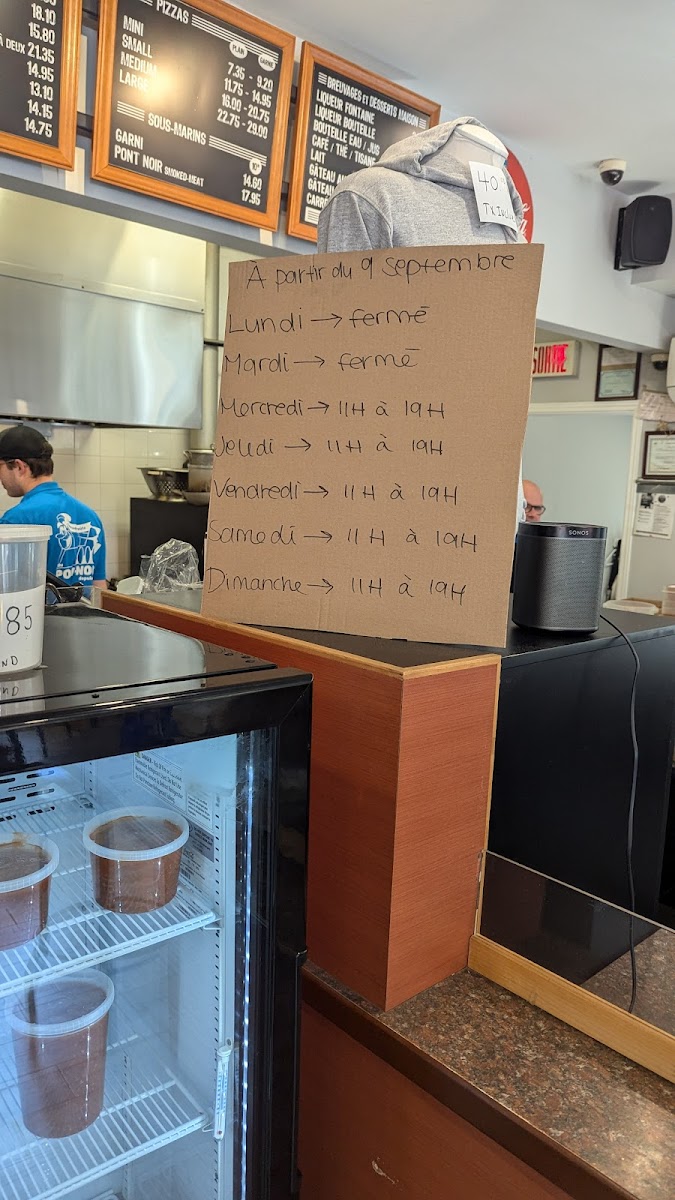 18.10
15.80
À DEUX 21.35
14.95
13.10
14.15
14.75
PIZZAS
PLAIN GARNIE
MINI 7.35 - 9.20
SMALL 11.75 - 14.95
MEDIUM 16.00 - 20.75
LARGE 22.75 - 29.00
SOUS-MARINS
10"
GARNI 14.60
PONT NOIR SMOKED-MEAT 17.95
BREUVAGES ET DESSERTS MAISON
LIQUEUR FONTAINE
LIQUEUR BOUTEILLE
BOUTEILLE EAU / JUS
CAFÉ / THÉ / TISANE
LAIT
GÂTEAU
GÂTEAU
40
À partir du 9 septembre
Lundi → fermé
Mardi → fermé
Mercredi → 11H à 19H
Jeudi → 11H à 19H
Vendredi → 11H à 19H
Samedi → 11H à 19H
Dimanche → 11H à 19H
SORTIE
SONOS
85